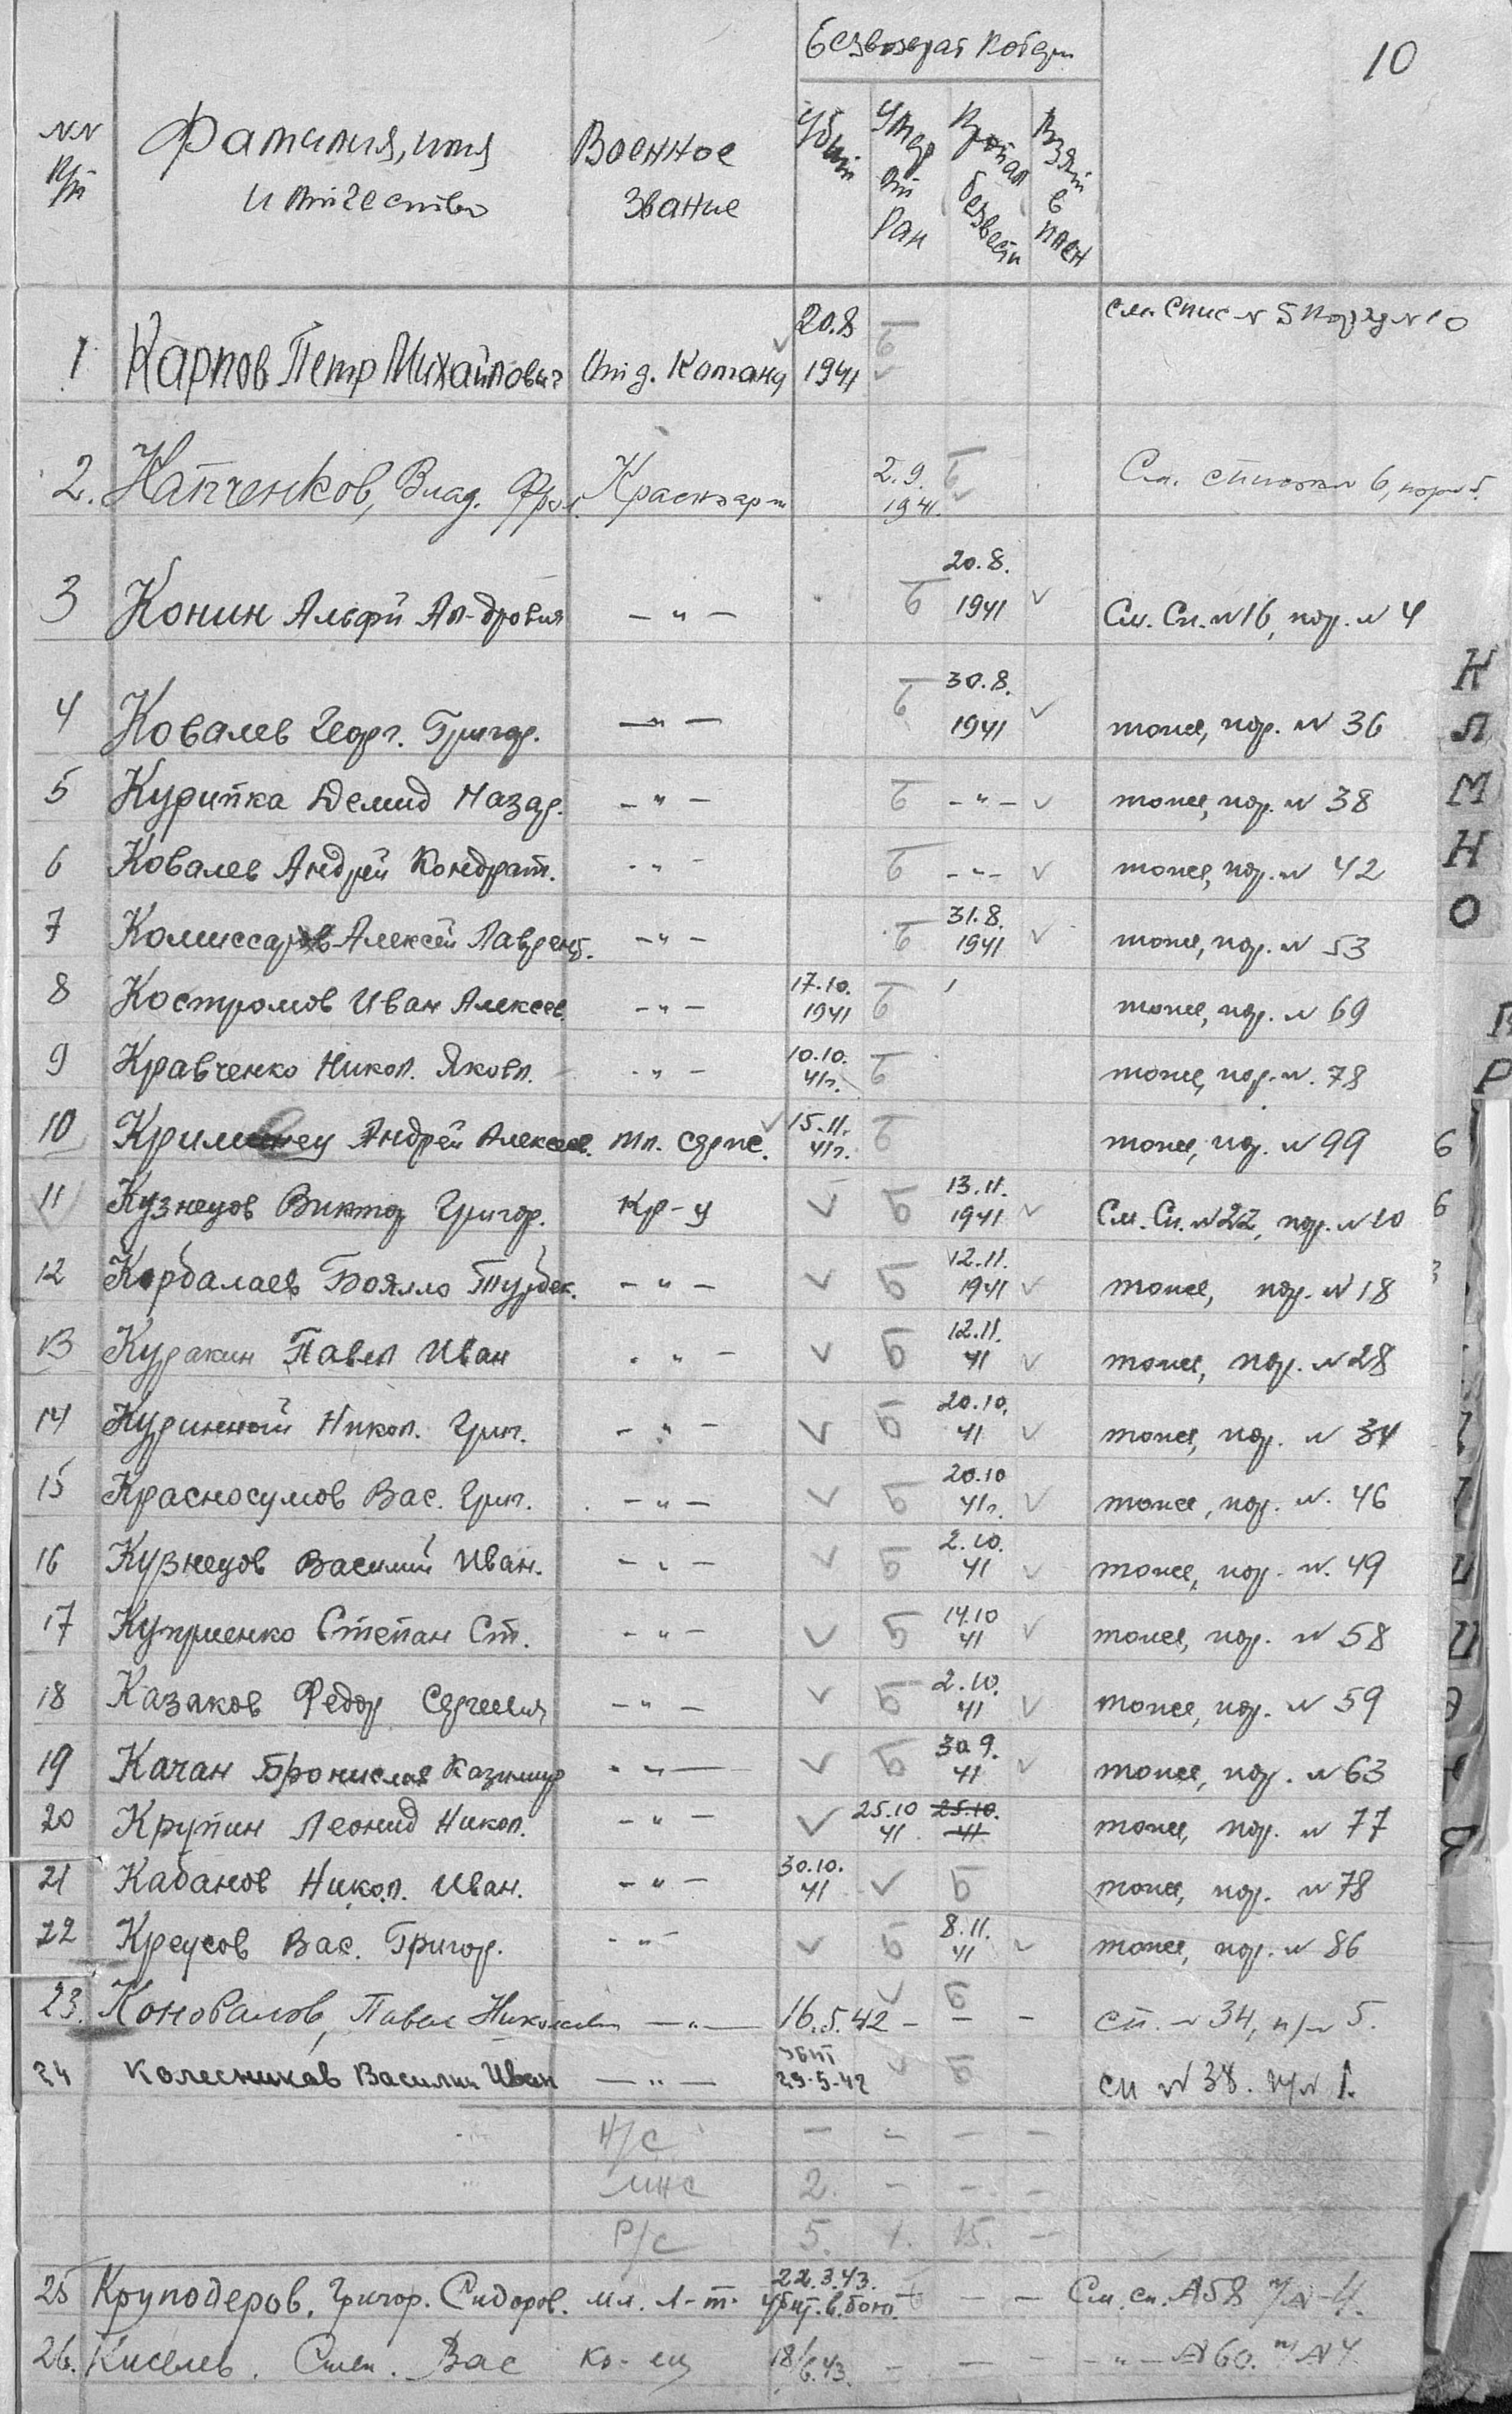 10
Безвозврат потери
NN п/п Фамилия, имя и отчество Военное звание Убит Умер от ран Пропал без вести Взят в плен
1 Карпов Петр Михайлович Отд. Команд 20.8 1941 см. Спис N 5 пор N 10
2. Капченков, Влад. Фрол. Красноарм 2.9. 1941. См. список 6, пор 5.
3 Конин Альфи Ал-дрович — " — 20.8. 1941 См. Сп. N 16, пор. N 4
4 Ковалев Георг. Григор. — " — 30.8. 1941 тоже, пор. N 36
5 Курипка Демид Назар. — " — — " — тоже, пор. N 38
6 Ковалев Андрей Кондрат. - " - - " - тоже, пор. N 42
7 Комиссаров Алексей Лаврент. — " — 31.8. 1941 тоже, пор. N 53
8 Костромов Иван Алексеев. — " — 17.10. 1941 тоже, пор. N 69
9 Кравченко Никол. Яковл. - " - 10.10. 41г. тоже, пор. N. 78
10 Андрей Алексеев. мл. серж. 15.11. 41г. тоже, пор. N 99
11 Кузнецов Виктор Григор. Кр-ц 13.11. 1941 См. Сп. N 22, пор. N 10
12 Кордалаев Боялло Турбек. — " — 12.11. 1941 тоже, пор. N 18
13 Куракин Павел Иван - " - 12.11. 41 тоже, пор. N 28
14 Куринной Никол. Григ. - " - 20.10. 41 тоже, пор. N 34
15 Красносумов Вас. Григ. - " - 20.10 41г. тоже, пор. N. 46
16 Кузнецов Василий Иван. - " - 2.10. 41 тоже, пор. N. 49
17 Куприенко Степан Ст. - " - 14.10 41 тоже, пор. N 58
18 Казаков Федор Сергеевич - " - 2.10. 41 тоже, пор. N 59
19 Качан Бронислав Казимир - " — 30 9. 41 тоже, пор. N 63
20 Крупин Леонид Никол. - " - 25.10 41 25.10. 41 тоже, пор. N 77
21 Кабанов Никол. Иван. - " - 30.10. 41 тоже, пор. N 78
22 Креусов Вас. Григор. - " - 8.11. 41 тоже, пор. N 86
23. Коновалов, Павел Николаевич — " — 16.5.42 - - - сп. N 34, п/N 5.
24 Колесников Василий Иван — " — убит 29-5-42 сп N 38. п/N 1.
Н/С - - - -
МНС 2. - - -
Р/С 5. 1. 15. -
25 Круподеров. Григор. Сидоров. мл. л-т. 22.3.43. убит. в. бою. - - См. сп. N 58 п/N-4.
26. Киселев. Степ. Вас Кр-ец 18/6.43. - - - - " - N 60. п/N 4
Н
Л
М
Н
О
П
Р